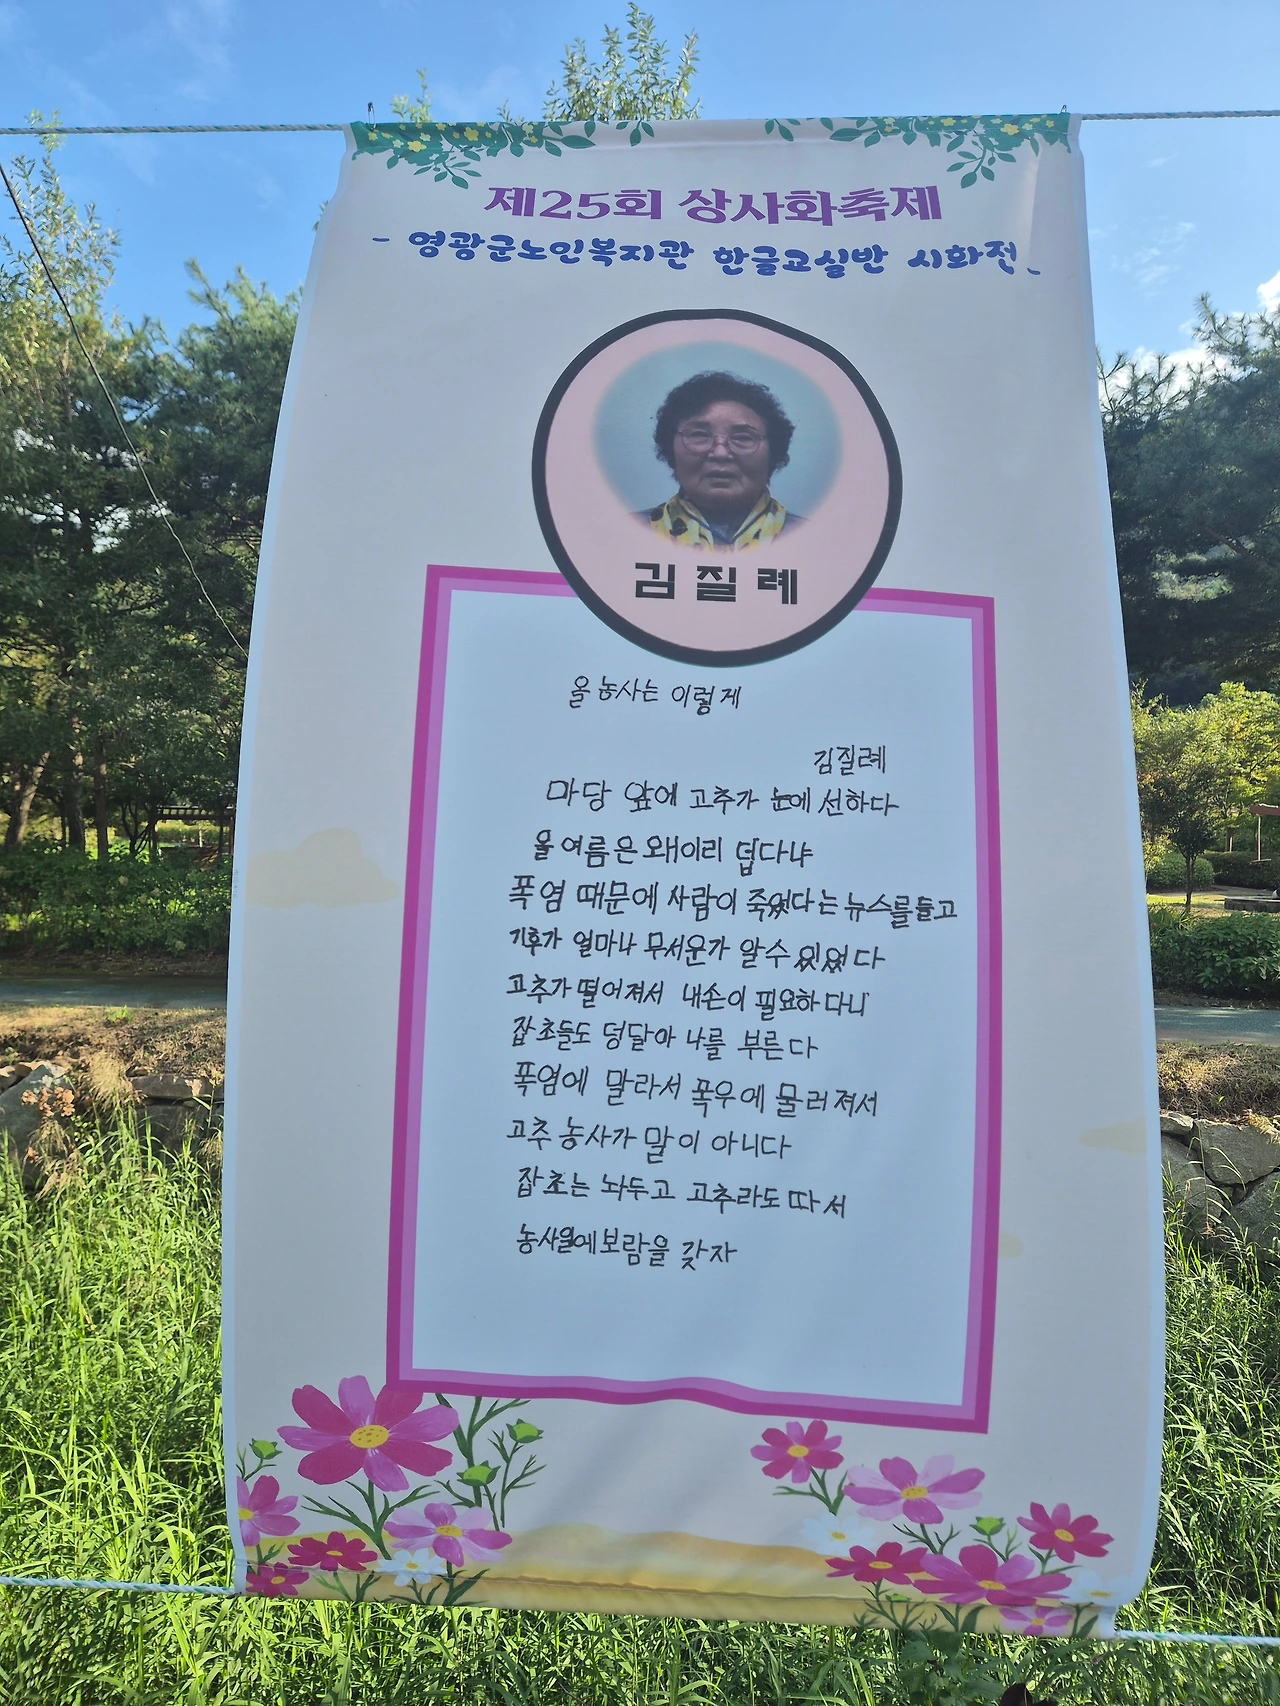 제25회 상사화축제
- 영광군노인복지관 한글교실반 시화전 -
김질례
올 농사는 이렇게
김질례
마당 앞에 고추가 눈에 선하다
올 여름은 왜이리 덥다냐
폭염 때문에 사람이 죽었다는 뉴스를듣고
기후가 얼마나 무서운가 알수 있었다
고추가 떨어져서 내손이 필요하다니
잡초들도 덩달아 나를 부른다
폭염에 말라서 폭우에 물러져서
고추 농사가 말이 아니다
잡초는 놔두고 고추라도 따서
농사일에보람을 갖자